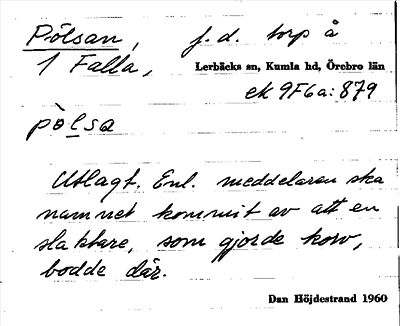 Pölsan, f.d. torp å
1 Falla,
Lerbäcks sn, Kumla hd, Örebro län
ek 9F6a:879
pòlsa
Utlagt. Enl. meddelaren ska
namnet kommit av att en
slaktare, som gjorde korv,
bodde där.
Dan Höjdestrand 1960